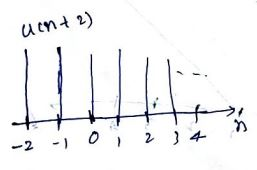 u(n+2)
-2 -1 0 1 2 3 4 n